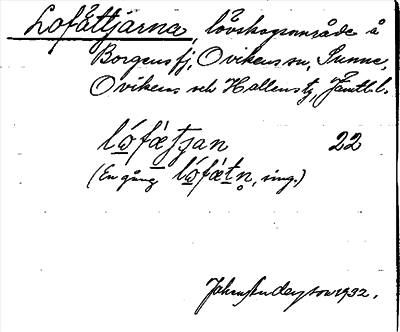 Lofåttjärna, lövskogsområde å
Borgens fj, Ovikens sn, Sunne,
Ovikens och Hallens tg, Jämtl. l.
lófǽtjan 22
(En gång lófǽtn̥, sing.)
Johan Andersson 1932.